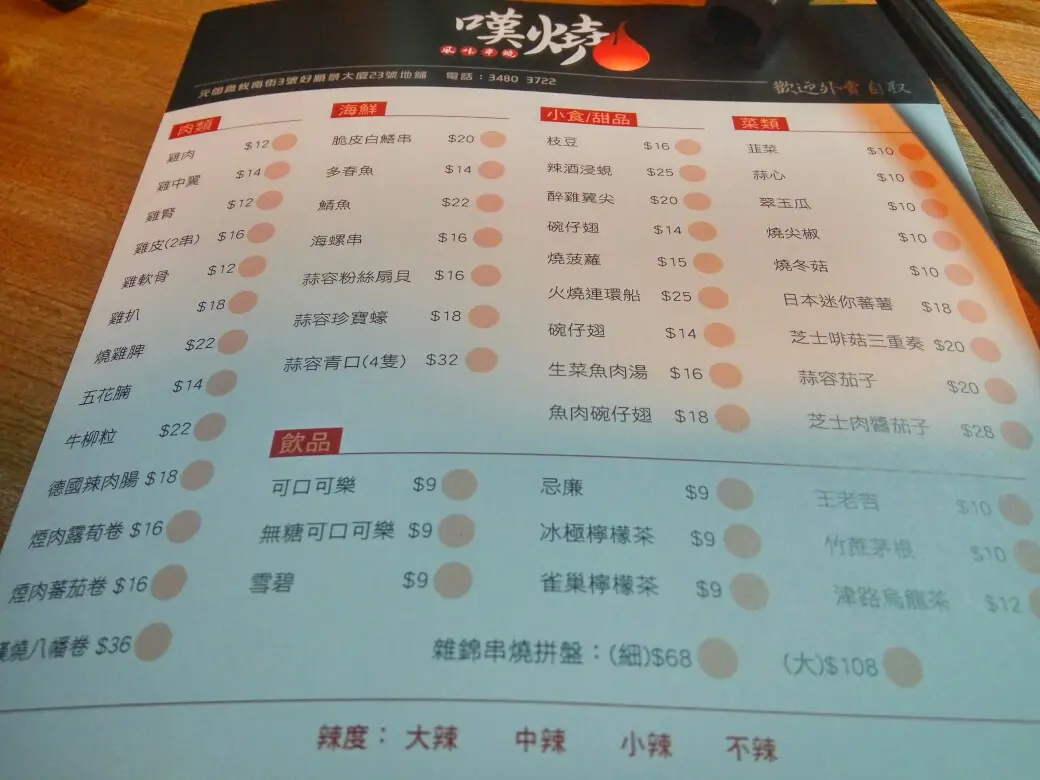 嘆燒
風味串燒
元朗鳳攸南街3號好順景大廈23號地舖 電話：3480 3722
歡迎外賣自取
肉類
雞肉 $12
雞中翼 $14
雞腎 $12
雞皮(2串) $16
雞軟骨 $12
雞扒 $18
燒雞脾 $22
五花腩 $14
牛柳粒 $22
德國辣肉腸 $18
煙肉露荀卷 $16
煙肉蕃茄卷 $16
燒八幡卷 $36
海鮮
脆皮白鱔串 $20
多春魚 $14
鯖魚 $22
海螺串 $16
蒜容粉絲扇貝 $16
蒜容珍寶蠔 $18
蒜容青口(4隻) $32
小食/甜品
枝豆 $16
辣酒浸蜆 $25
醉雞翼尖 $20
碗仔翅 $14
燒菠蘿 $15
火燒連環船 $25
碗仔翅 $14
生菜魚肉湯 $16
魚肉碗仔翅 $18
菜類
韮菜 $10
蒜心 $10
翠玉瓜 $10
燒尖椒 $10
燒冬菇 $10
日本迷你蕃薯 $18
芝士啡菇三重奏 $20
蒜容茄子 $20
芝士肉醬茄子 $28
飲品
可口可樂 $9
無糖可口可樂 $9
雪碧 $9
忌廉 $9
冰極檸檬茶 $9
雀巢檸檬茶 $9
王老吉 $10
竹蔗茅根 $10
津路烏龍茶 $12
雜錦串燒拼盤：(細)$68 (大)$108
辣度： 大辣 中辣 小辣 不辣